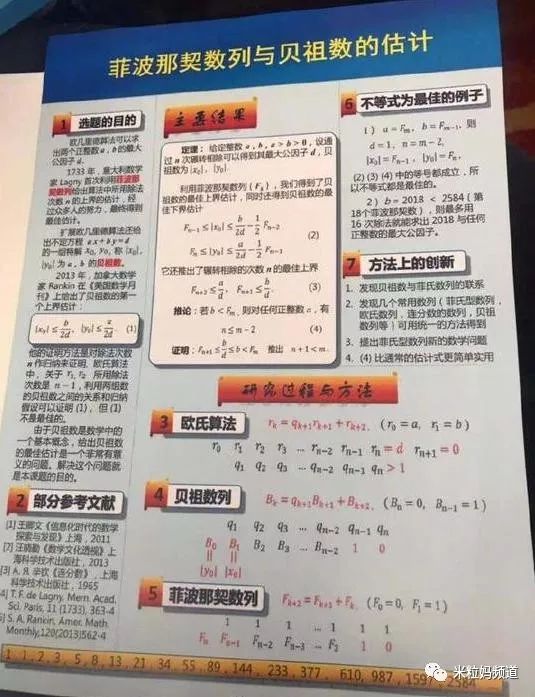 菲波那契数列与贝祖数的估计
1 选题的目的
欧几里德算法可以求
出两个正整数 a, b 的最大
公因子 d.
1733 年，意大利数学
家 Lagny 首次利用菲波那
契数列给出算法中所用除法
次数 n 的上界的估计，经
过众多人的努力，最终得到
最佳估计。
扩展欧几里德算法还给
出不定方程 ax+by=d
的一组特解 x₀, y₀, 称 |x₀|,
|y₀| 为 a, b 的贝祖数。
2013 年，加拿大数学
家 Rankin 在《美国数学月
刊》上给出了贝祖数的第一
个上界估计：
|x₀| ≤ b/2d, |y₀| ≤ a/2d. (1)
他的证明方法是对除法次数
n 作归纳来证明. 欧氏算法
中，关于 r₁, r₂ 所用除法
次数是 n−1，利用两组数
的贝祖数之间的关系和归纳
假设可以证明 (1)，但 (1)
不是最佳的。
由于贝祖数是数学中的
一个基本概念，给出贝祖数
的最佳估计是一个非常有意
义的问题。解决这个问题就
是本课题的目的。
2 部分参考文献
[1] 王卿文《信息化时代的数学
探索与发现》上海，2011
汪晓勤《数学文化透视》上
海科学技术出版社，2013
[3] A. Я. 辛钦《连分数》，上海
科学技术出版社，1965
4] T. F. de Lagny. Mem. Acad.
Sci. Paris, 11 (1733), 363-4
5] S. A. Rankin, Amer. Math.
Monthly,120(2013)562-4
主要结果
定理：给定整数 a, b, a > b > 0，设通
过 n 次辗转相除可以得到其最大公因子 d，贝
祖数为 |x₀|, |y₀|.
利用菲波那契数列 {Fₖ}，我们得到了贝
祖数的最佳上界估计，同时还得到贝祖数的最
佳下界估计
Fₙ₋₁ ≤ |x₀| ≤ b/2d − 1/2 Fₙ₋₂
(2)
Fₙ ≤ |y₀| ≤ a/2d − 1/2 Fₙ₋₁
它还推出了辗转相除的次数 n 的最佳上界
Fₙ₊₂ ≤ a/d, Fₙ₊₁ ≤ b/d. (3)
推论：若 b < Fₘ, 则对任何正整数 a，有
n ≤ m − 2 (4)
证明：Fₙ₊₁ ≤ b/d ≤ b < Fₘ 推出 n+1 < m.
6 不等式为最佳的例子
1) a = Fₘ, b = Fₘ₋₁, 则
d = 1, n = m − 2,
|x₀| = Fₙ₋₁, |y₀| = Fₙ.
(2) (3) (4) 中的等号都成立，所
以不等式都是最佳的。
2) b = 2018 < 2584 (第
18个菲波那契数)，则最多用
16 次除法就能求出 2018 与任何
正整数的最大公因子。
7 方法上的创新
1. 发现贝祖数与菲氏数列的联系
2. 发现几个常用数列（菲氏型数列，
欧氏数列，连分数的数列，贝祖
数列等）可用统一的方法得到
3. 提出菲氏型数列新的数学问题
4. (4) 比通常的估计式更简单实用
研究过程与方法
3 欧氏算法 rₖ = qₖ₊₁rₖ₊₁ + rₖ₊₂, (r₀ = a, r₁ = b)
r₀ r₁ r₂ r₃ … rₙ₋₂ rₙ₋₁ rₙ = d rₙ₊₁ = 0
q₁ q₂ q₃ … qₙ₋₂ qₙ₋₁ qₙ > 1
4 贝祖数列 Bₖ = qₖ₊₁Bₖ₊₁ + Bₖ₊₂, (Bₙ = 0, Bₙ₋₁ = 1)
q₁ q₂ q₃ … qₙ₋₂ qₙ₋₁ qₙ
B₀ B₁ B₂ B₃ … Bₙ₋₂ 1 0
|| ||
|y₀| |x₀|
5 菲波那契数列 Fₖ₊₂ = Fₖ₊₁ + Fₖ, (F₀ = 0, F₁ = 1)
1 1 1 … 1 1 1
Fₙ Fₙ₋₁ Fₙ₋₂ Fₙ₋₃ … F₂ 1 0
1, 1, 2, 3, 5, 8, 13, 21, 34, 55, 89, 144, 233, 377, 610, 987, 1597, 2584
米粒妈频道